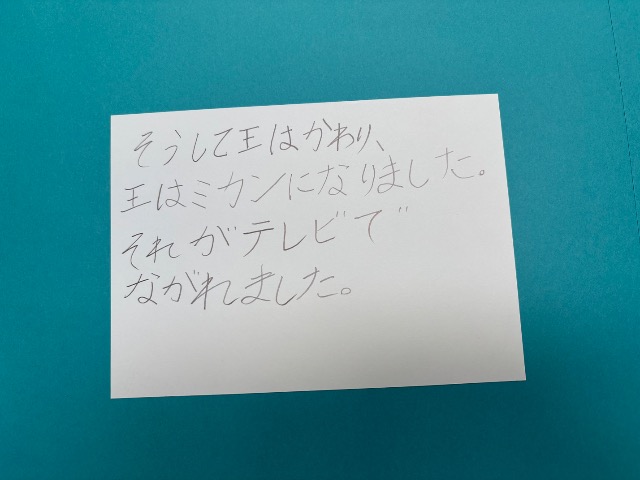 そうして王はかわり、
王はミカンになりました。
それがテレビで
ながれました。